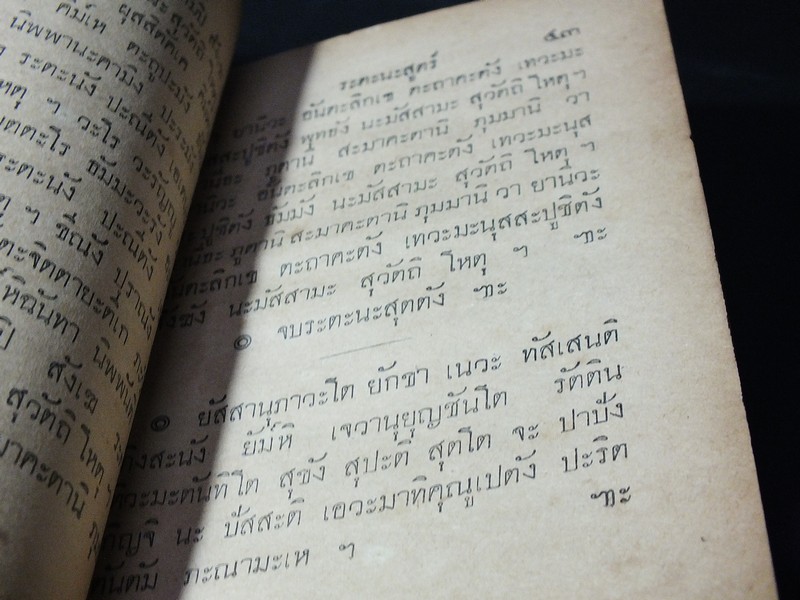 สุวัตถิ
คัมํเห ตะถูปะมัง
นิพพานะคามิง ปะระมัง
ระตะนัง ปะณีตัง เอเต
หตุ ฯ วะโร วะรัญญู
ตตะโร ธัมมะวะรัง
ระตะนัง ปะณีตัง
ตุ ฯ ขีณัง ปุราณัง
ตะจิตตายะติเก ภะ
หิฉันทา นิพพันติ
ปิ สังเฆ ระ
สุวัตถิ โหตุ
มาคะตานิ ภุ
ระตะนะสูตร์ ๕๓
ยานิวะ อันตะลิกเข ตะถาคะตัง เทวะมะ
สสะปูชิตัง พุทธัง นะมัสสามะ สุวัตถิ โหตุ ฯ
นีธะ ภูตานิ สะมาคะตานิ ภุมมานิ วา
นิวะ อันตะลิกเข ตะถาคะตัง เทวะมะนุส
ปูชิตัง ธัมมัง นะมัสสามะ สุวัตถิ โหตุ ฯ
นีธะ ภูตานิ สะมาคะตานิ ภุมมานิ วา ยานิวะ
นตะลิกเข ตะถาคะตัง เทวะมะนุสสะปูชิตัง
งฆัง นะมัสสามะ สุวัตถิ โหตุ ฯ ๚ะ
๏ จบระตะนะสุตตัง ๚ะ
๏ ยัสสานุภาวะโต ยักขา เนวะ ทัสเสนติ
ติงสะนัง ยัมํหิ เจวานุยุญชันโต รัตติน
ทิวะมะตันทิโต สุขัง สุปะติ สุตโต จะ ปาปัง
กิญจิ นะ ปัสสะติ เอวะมาทิคุณูเปตัง ปะริต
ตันตัม ภะณามะเห ฯ ๚ะ